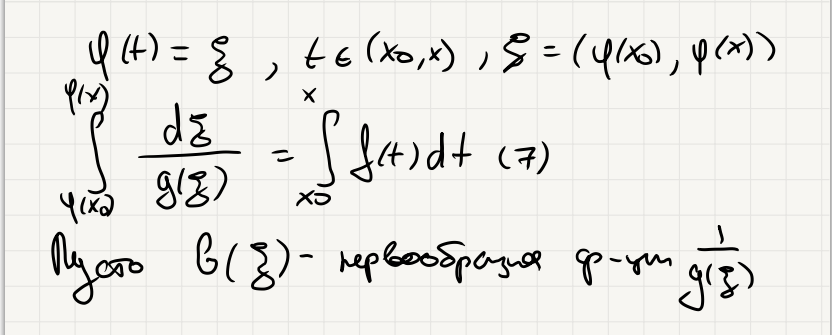 φ(t) = ξ , t ∈ (x0, x) , ξ = (φ(x0), φ(x))
∫_{φ(x0)}^{φ(x)} dξ / g(ξ) = ∫_{x0}^{x} f(t) dt (7)
Пусть G(ξ) - первообразная ф-ции 1 / g(ξ)